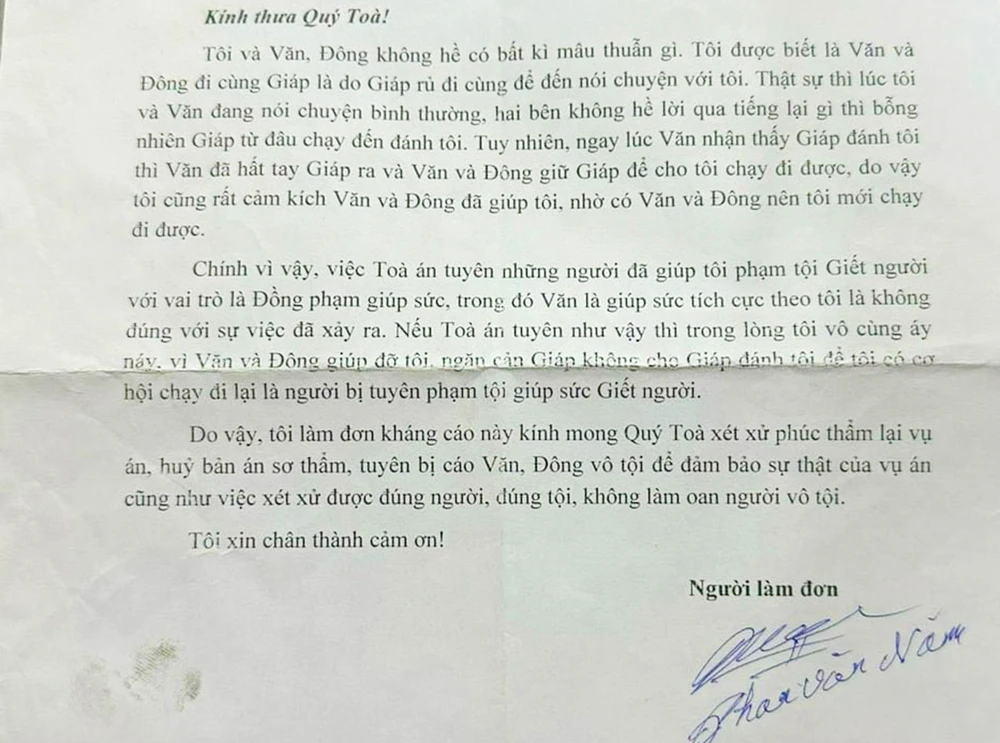 Kính thưa Quý Toà!
Tôi và Văn, Đông không hề có bất kì mâu thuẫn gì. Tôi được biết là Văn và
Đông đi cùng Giáp là do Giáp rủ đi cùng để đến nói chuyện với tôi. Thật sự thì lúc tôi
và Văn đang nói chuyện bình thường, hai bên không hề lời qua tiếng lại gì thì bỗng
nhiên Giáp từ đâu chạy đến đánh tôi. Tuy nhiên, ngay lúc Văn nhận thấy Giáp đánh tôi
thì Văn đã hất tay Giáp ra và Văn và Đông giữ Giáp để cho tôi chạy đi được, do vậy
tôi cũng rất cảm kích Văn và Đông đã giúp tôi, nhờ có Văn và Đông nên tôi mới chạy
đi được.
Chính vì vậy, việc Toà án tuyên những người đã giúp tôi phạm tội Giết người
với vai trò là Đồng phạm giúp sức, trong đó Văn là giúp sức tích cực theo tôi là không
đúng với sự việc đã xảy ra. Nếu Toà án tuyên như vậy thì trong lòng tôi vô cùng áy
náy, vì Văn và Đông giúp đỡ tôi, ngăn cản Giáp không cho Giáp đánh tôi để tôi có cơ
hội chạy đi lại là người bị tuyên phạm tội giúp sức Giết người.
Do vậy, tôi làm đơn kháng cáo này kính mong Quý Toà xét xử phúc thẩm lại vụ
án, huỷ bản án sơ thẩm, tuyên bị cáo Văn, Đông vô tội để đảm bảo sự thật của vụ án
cũng như việc xét xử được đúng người, đúng tội, không làm oan người vô tội.
Tôi xin chân thành cảm ơn!
Người làm đơn
Phan Văn Năm